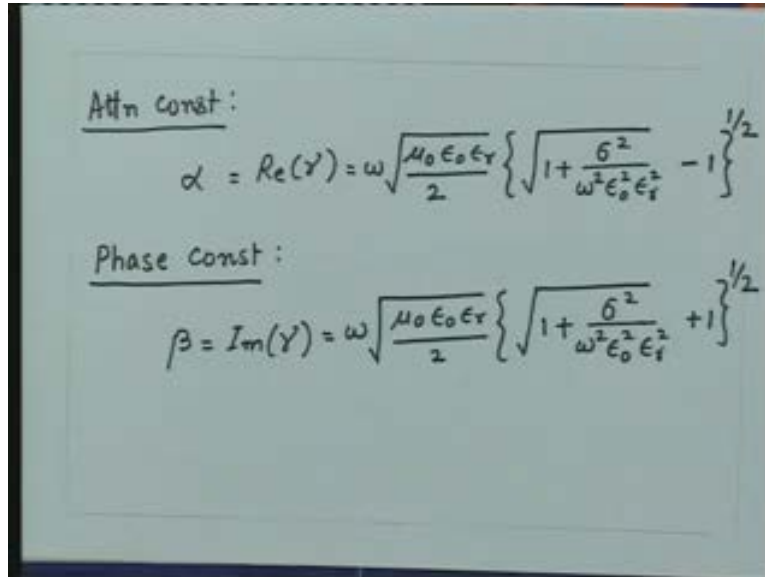 Attn const:
α = Re(γ) = ω√(μ₀ε₀εᵣ/2) {√(1 + σ²/(ω²ε₀²εᵣ²)) − 1}^1/2
Phase const:
β = Im(γ) = ω√(μ₀ε₀εᵣ/2) {√(1 + σ²/(ω²ε₀²εᵣ²)) + 1}^1/2